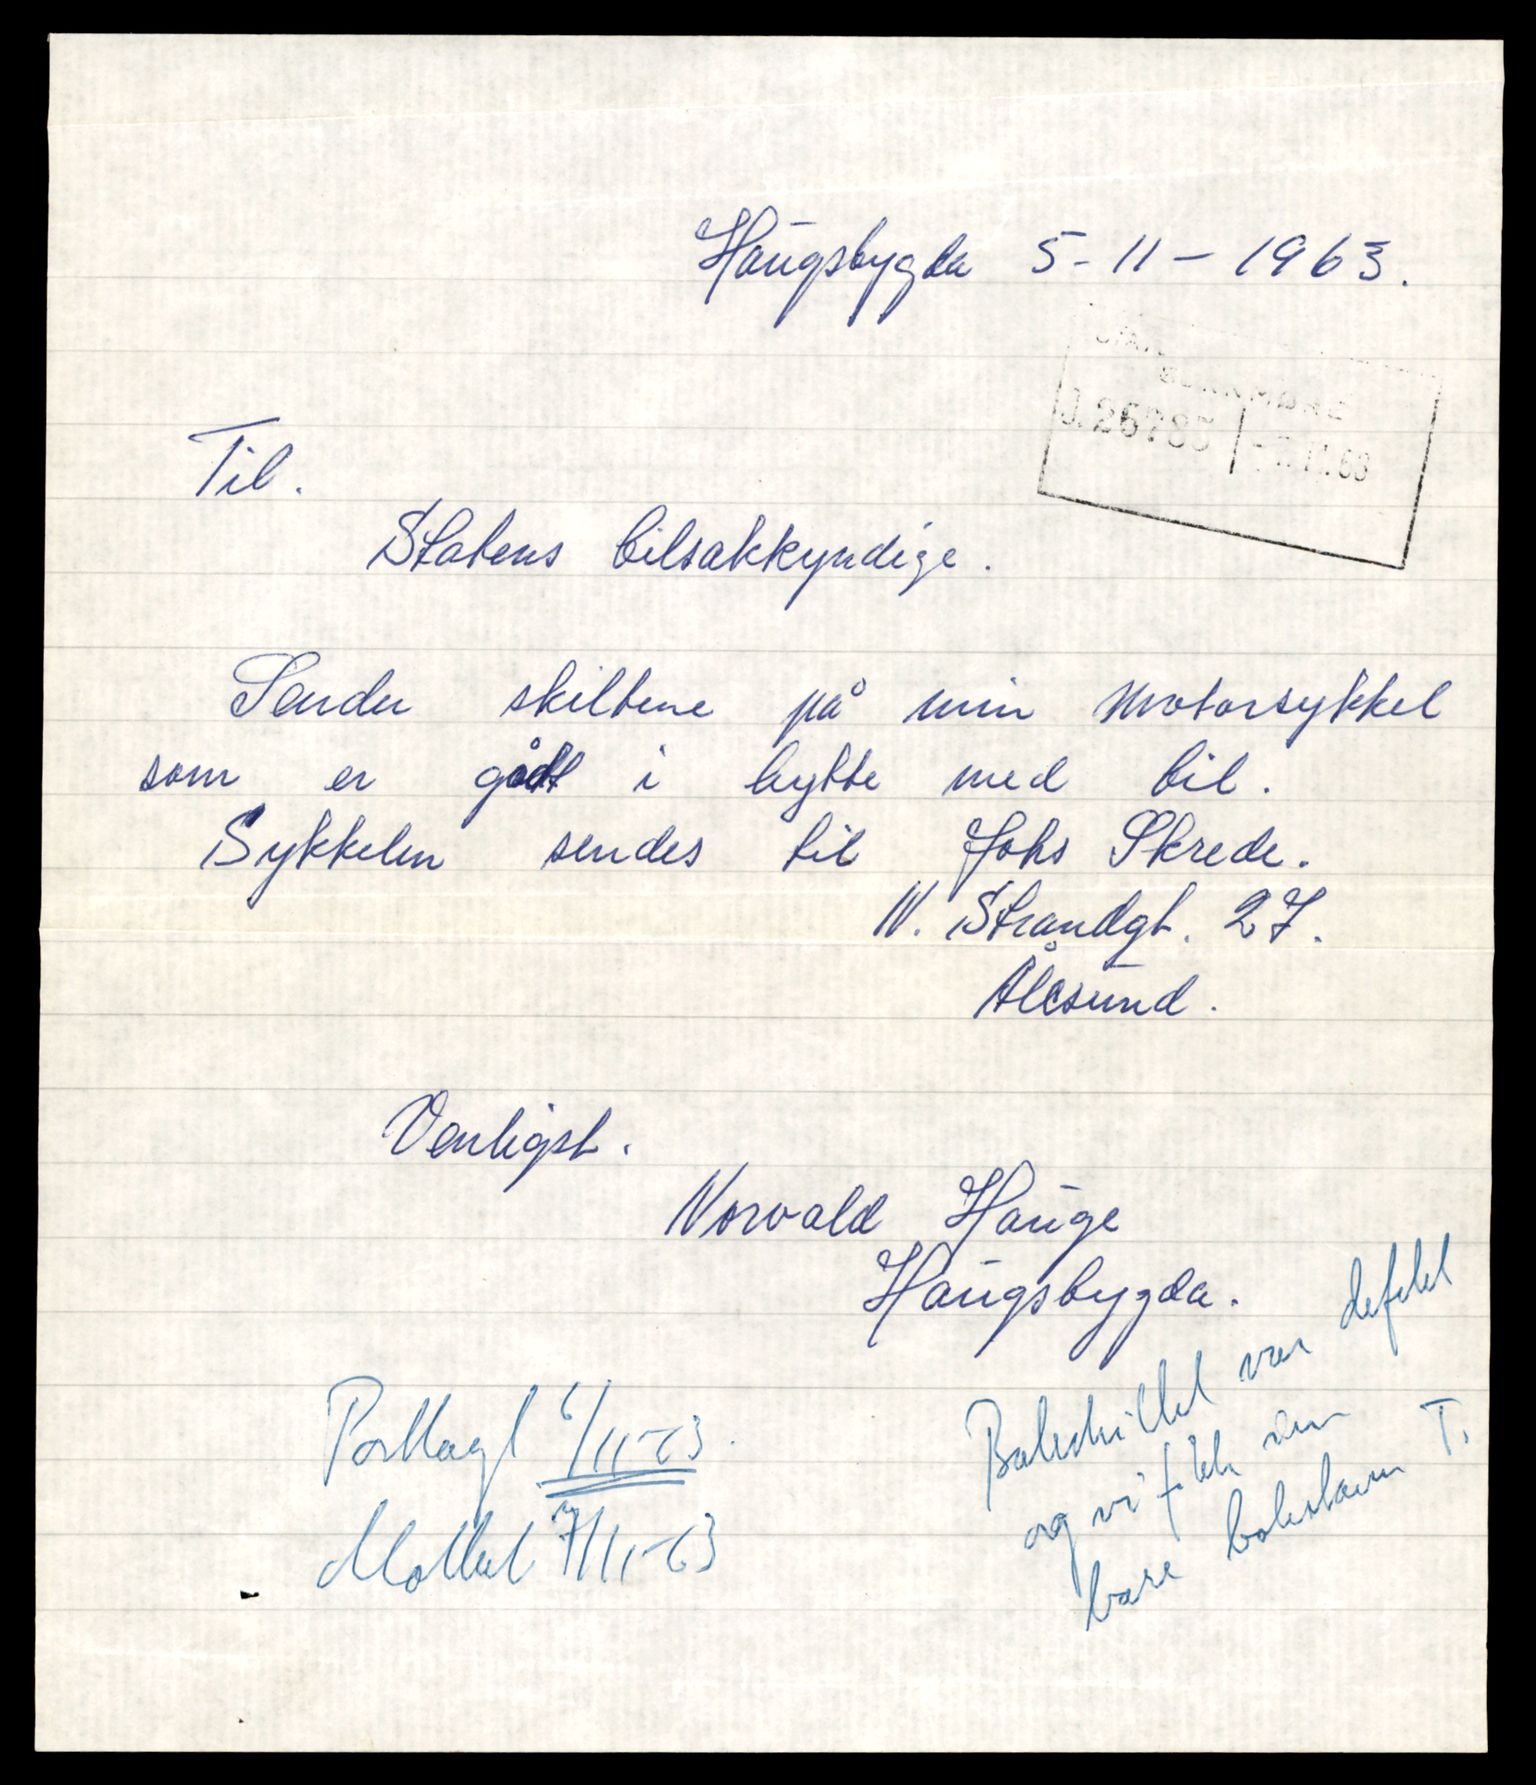 Haugsbygda 5-11-1963.
Til.
Statens bilsakkyndige.
Sender skiltene på min motorsykkel
som er gått i bytte med bil.
Sykkelen sendes til Johs Skrede.
N. Strandgt. 27.
Ålesund.
Venligst.
Norvald Hauge
Haugsbygda.
Postlagt 6/11-63.
Mottat 7/11-63
Bakskiltet var defekt
og vi fikk inn
bare bokstaven T.